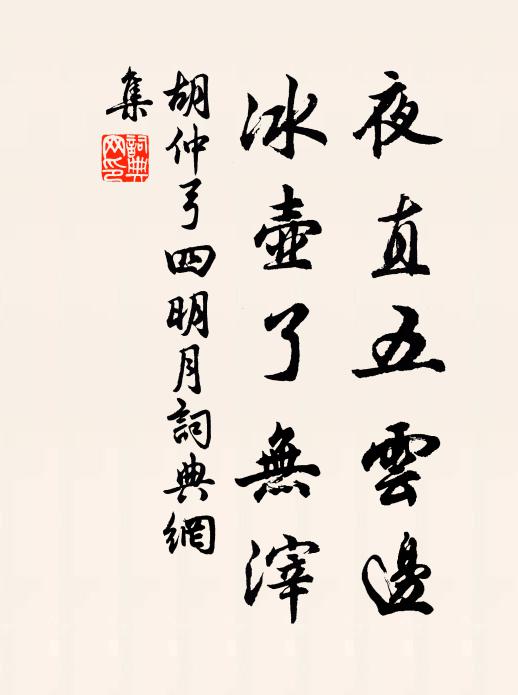 夜直五雲邊
冰壺了無滓
胡仲弓四明月詞典網
集
詞典
网印